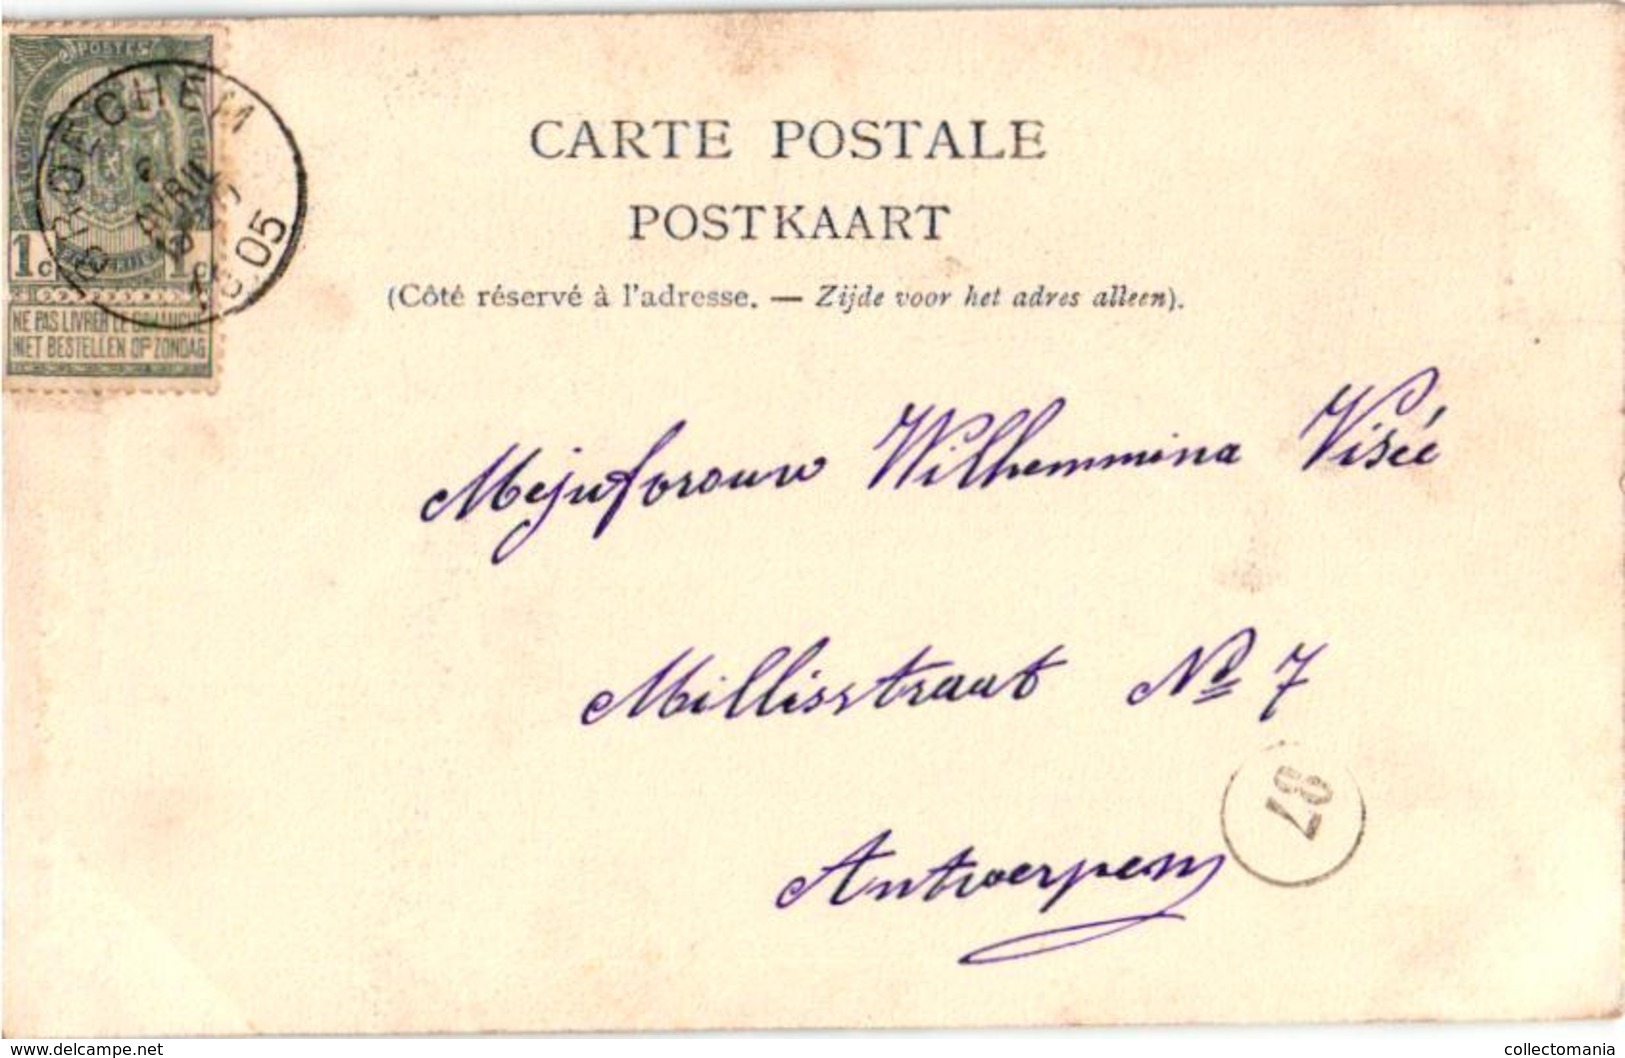 POSTES
BROECHEM
6
AVRIL
1905
1c 1c
NE PAS LIVRER LE DIMANCHE
NIET BESTELLEN OP ZONDAG
CARTE POSTALE
POSTKAART
(Côté réservé à l'adresse. — Zijde voor het adres alleen).
Mejuforouw Wilhemmina Visée
Millisstraat No 7
87
Antwerpen
www.delcampe.net
collectomania